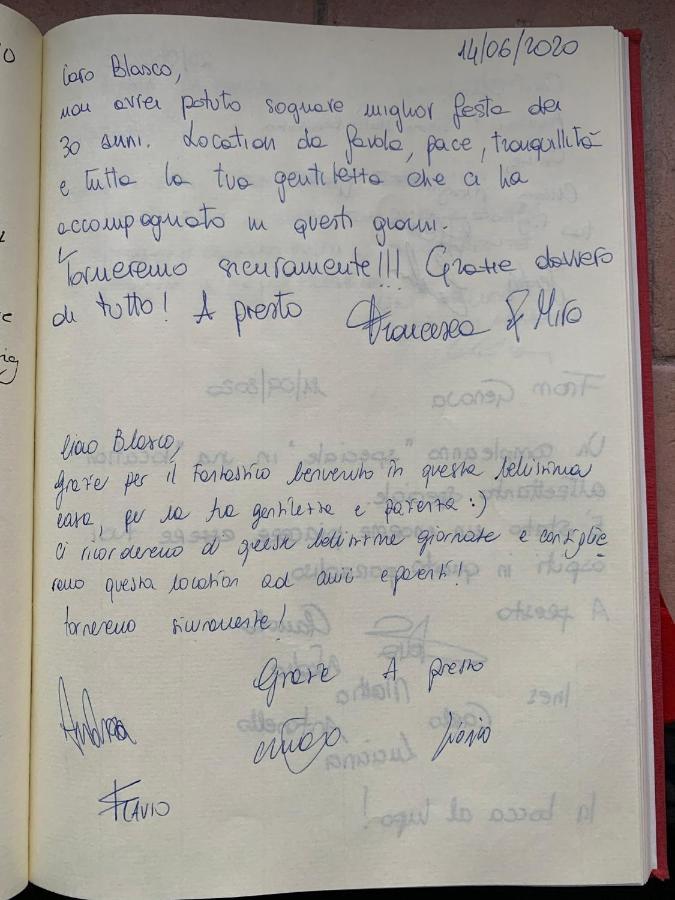 14/06/2020
Caro Blasco,
non avrei potuto sognare miglior festa dei
30 anni. Location da favola, pace, tranquillità
e tutta la tua gentilezza che ci ha
accompagnato in questi giorni.
Torneremo sicuramente!!! Grazie davvero
di tutto! A presto Francesca & Miro
Ciao Blasco,
grazie per il fantastico benvenuto in questa bellissima
casa, per la tua gentilezza e pazienza :)
Ci ricorderemo di queste bellissime giornate e consiglie
remo questa location ad amici e parenti!
torneremo sicuramente!
Grazie A presto
Andrea
FLAVIO